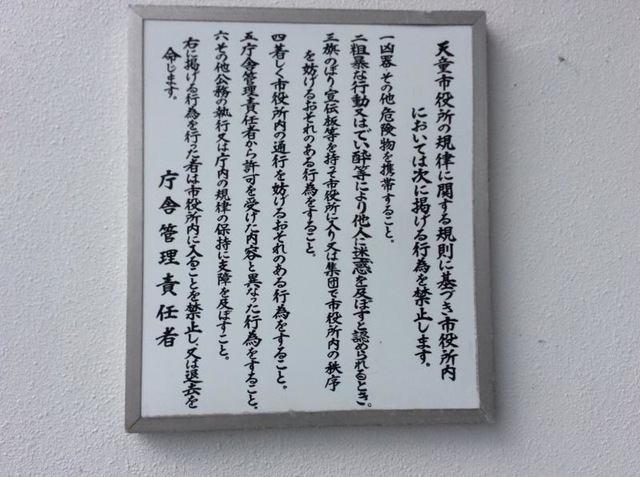 天童市役所の規律に関する規則に基づき市役所内
においては次に掲げる行為を禁止します。
一 凶器 その他 危険物を携帯すること。
二 粗暴な行動又はでい酔等により他人に迷惑を及ぼすと認められるとき。
三 旗のぼり宣伝板等を持って市役所に入り又は集団で市役所内の秩序
を妨げるおそれのある行為をすること。
四 著しく市役所内の通行を妨げるおそれのある行為をすること。
五 庁舎管理責任者から許可を受けた内容と異なった行為をすること。
六 その他公務の執行又は庁内の規律の保持に支障を及ぼすこと。
右に掲げる行為を行った者は市役所内に入ることを禁止し、又は退去を
命じます。
庁舎管理責任者